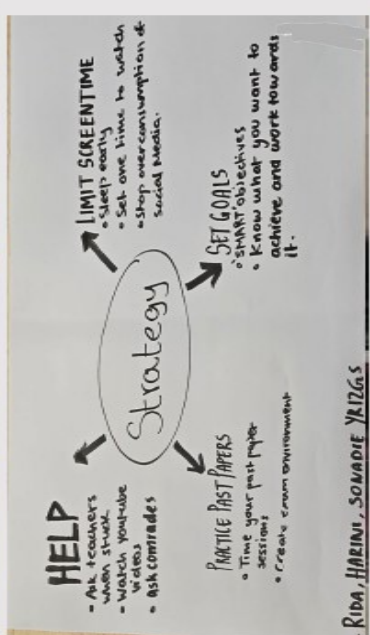 HELP
• Ask teachers
when stuck
• Watch youtube
videos
• Ask comrades
LIMIT SCREENTIME
• Sleep early
• Set one time to watch
• Stop overconsumption of
social media.
Strategy
PRACTICE PAST PAPERS
• Time your past paper
sessions
• Create exam environment
SET GOALS
• 'SMART' objectives
• Know what you want to
achieve and work towards
it.
- RIDA, HARINI, SONADIE YR12GS